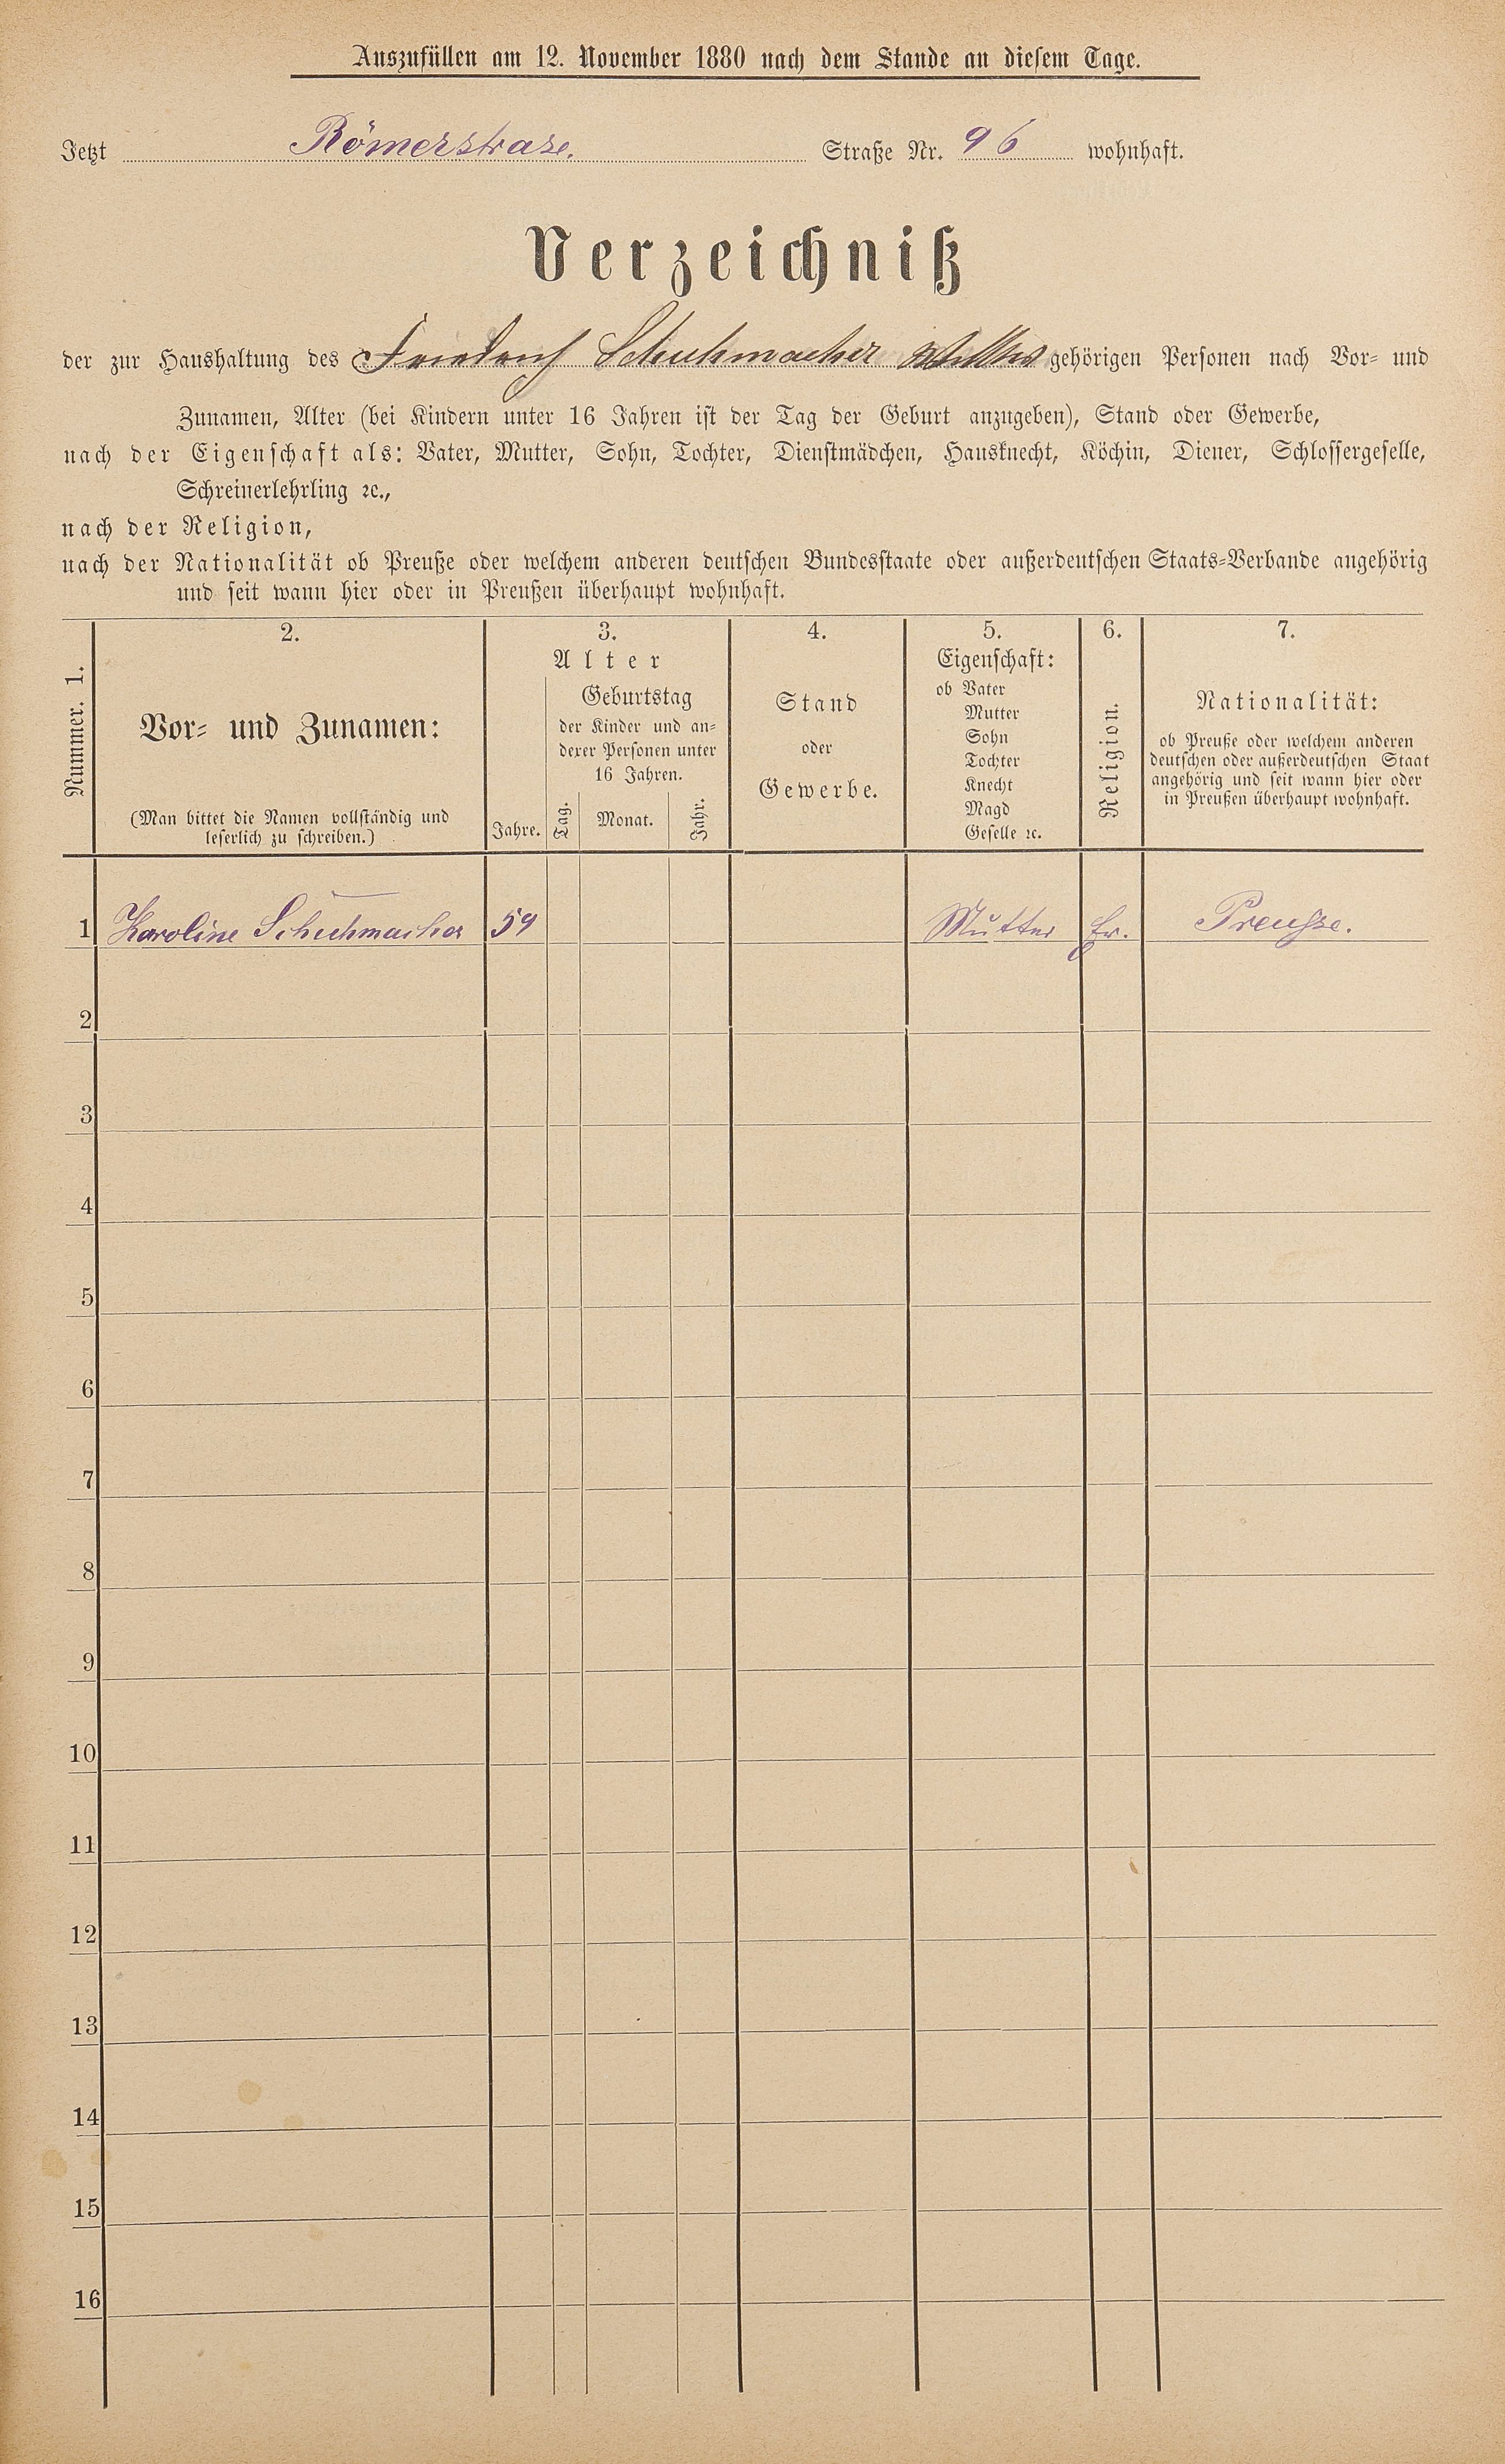 Auszufüllen am 12. November 1880 nach dem Stande an diesem Tage.
Jetzt Römerstrase. Straße Nr. 96 wohnhaft.
Verzeichniß
der zur Haushaltung des Friedrich Schuhmacher gehörigen Personen nach Vor- und
Zunamen, Alter (bei Kindern unter 16 Jahren ist der Tag der Geburt anzugeben), Stand oder Gewerbe,
nach der Eigenschaft als: Vater, Mutter, Sohn, Tochter, Dienstmädchen, Hausknecht, Köchin, Diener, Schlossergeselle,
Schreinerlehrling ꝛc.,
nach der Religion,
nach der Nationalität ob Preuße oder welchem anderen deutschen Bundesstaate oder außerdeutschen Staats-Verbande angehörig
und seit wann hier oder in Preußen überhaupt wohnhaft.
Nummer. 1.
2.
Vor- und Zunamen:
(Man bittet die Namen vollständig und
leserlich zu schreiben.)
3.
Alter
Jahre.
Geburtstag
der Kinder und an-
derer Personen unter
16 Jahren.
Tag.
Monat.
Jahr.
4.
Stand
oder
Gewerbe.
5.
Eigenschaft:
ob Vater
Mutter
Sohn
Tochter
Knecht
Magd
Geselle ꝛc.
6.
Religion.
7.
Nationalität:
ob Preuße oder welchem anderen
deutschen oder außerdeutschen Staat
angehörig und seit wann hier oder
in Preußen überhaupt wohnhaft.
1 Karoline Schuhmacher 59 Mutter Ev. Preußse.
2
3
4
5
6
7
8
9
10
11
12
13
14
15
16